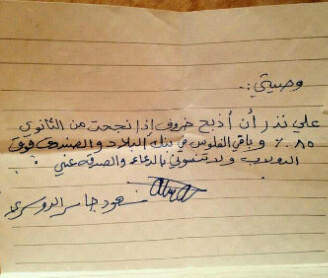 وصيتي :.
علي نذر أن أذبح خروف إذا نجحت من الثانوي
٨٥٪ و باقي الفلوس في بنك البلاد والصندق فوق
الدولاب ولا تنسوني بالدعاء والصدقه عني
سعود جاسر الدوسري